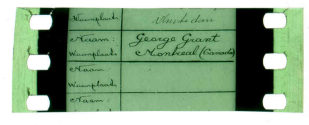 Woonplaats
Naam: George Grant
Woonplaats Montreal (Canada)
Naam
Woonplaats
Naam: